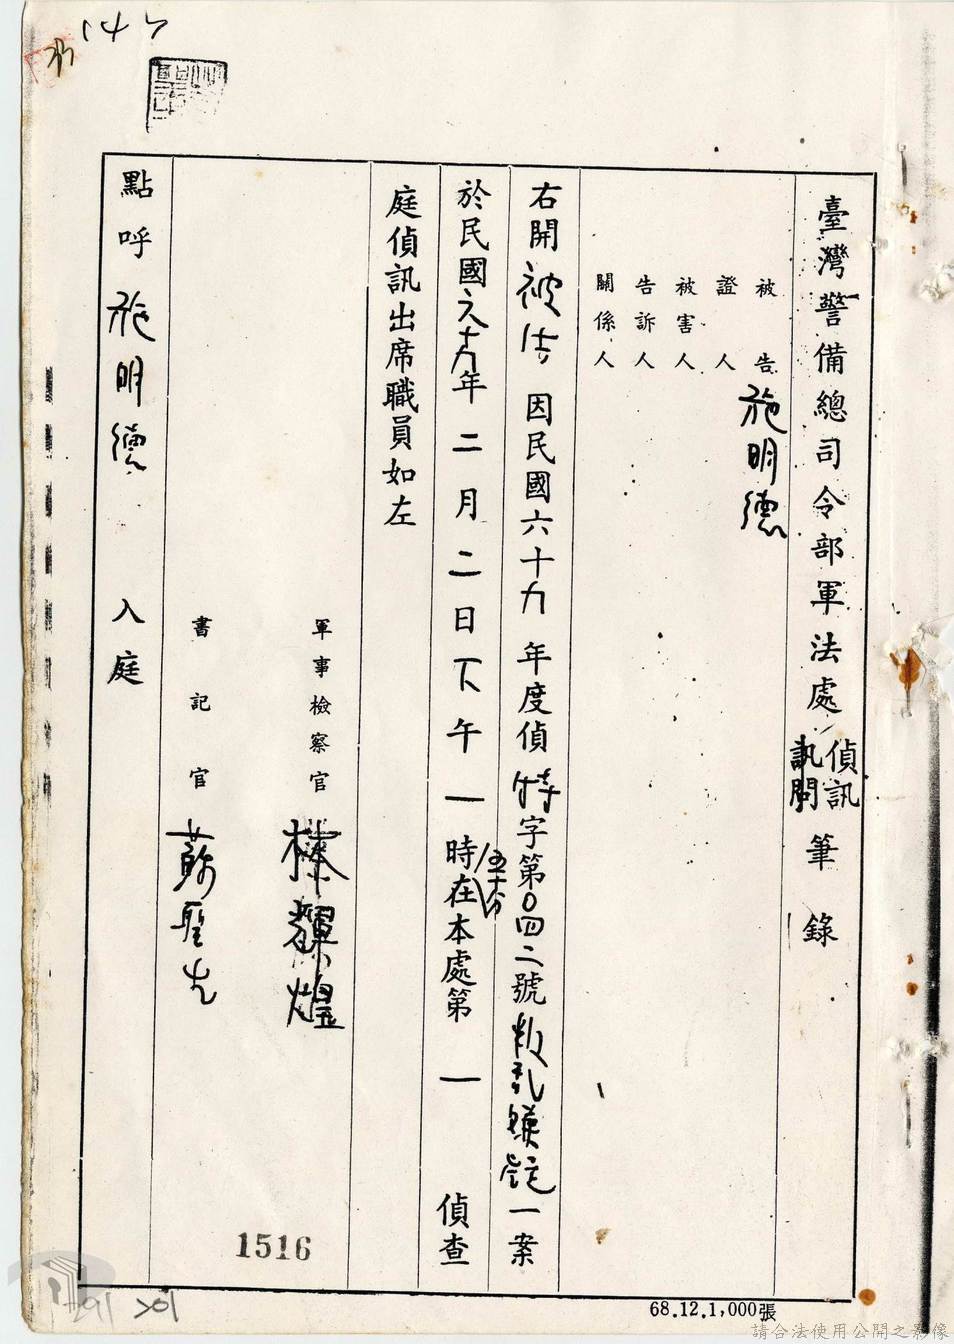 147
臺灣警備總司令部軍法處偵訊訊問筆錄
被告 施明德
證人
被害人
告訴人
關係人
右開被告因民國六十九年度偵特字第0四二號叛亂嫌疑一案
於民國六十九年二月二日下午一時五十分在本處第一偵查
庭偵訊出席職員如左
軍事檢察官 林輝煌
書記官 蘇聖先
點呼 施明德 入庭
1516
68.12.1,000張
請合法使用公開之影像